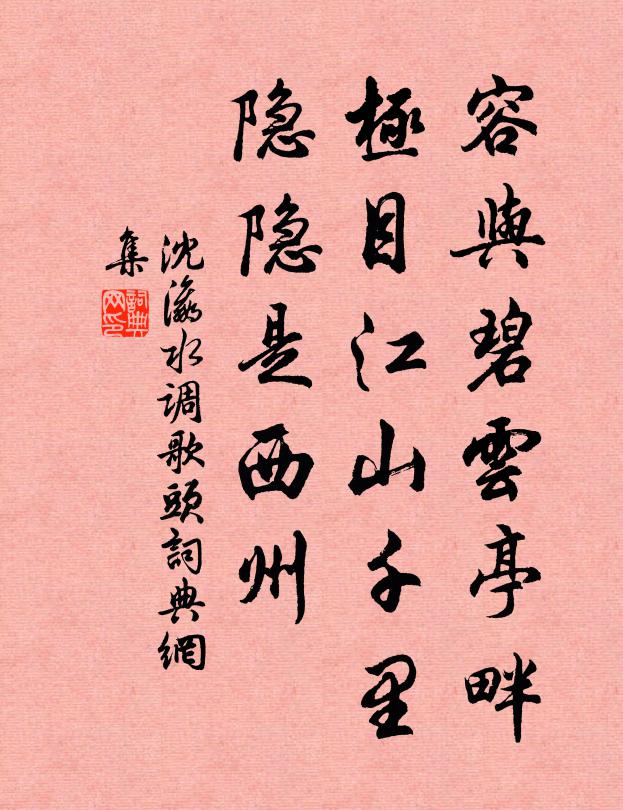 容與碧雲亭畔
極目江山千里
隐隐是西州
沈瀛水调歌頭詞典網
集
詞典网印